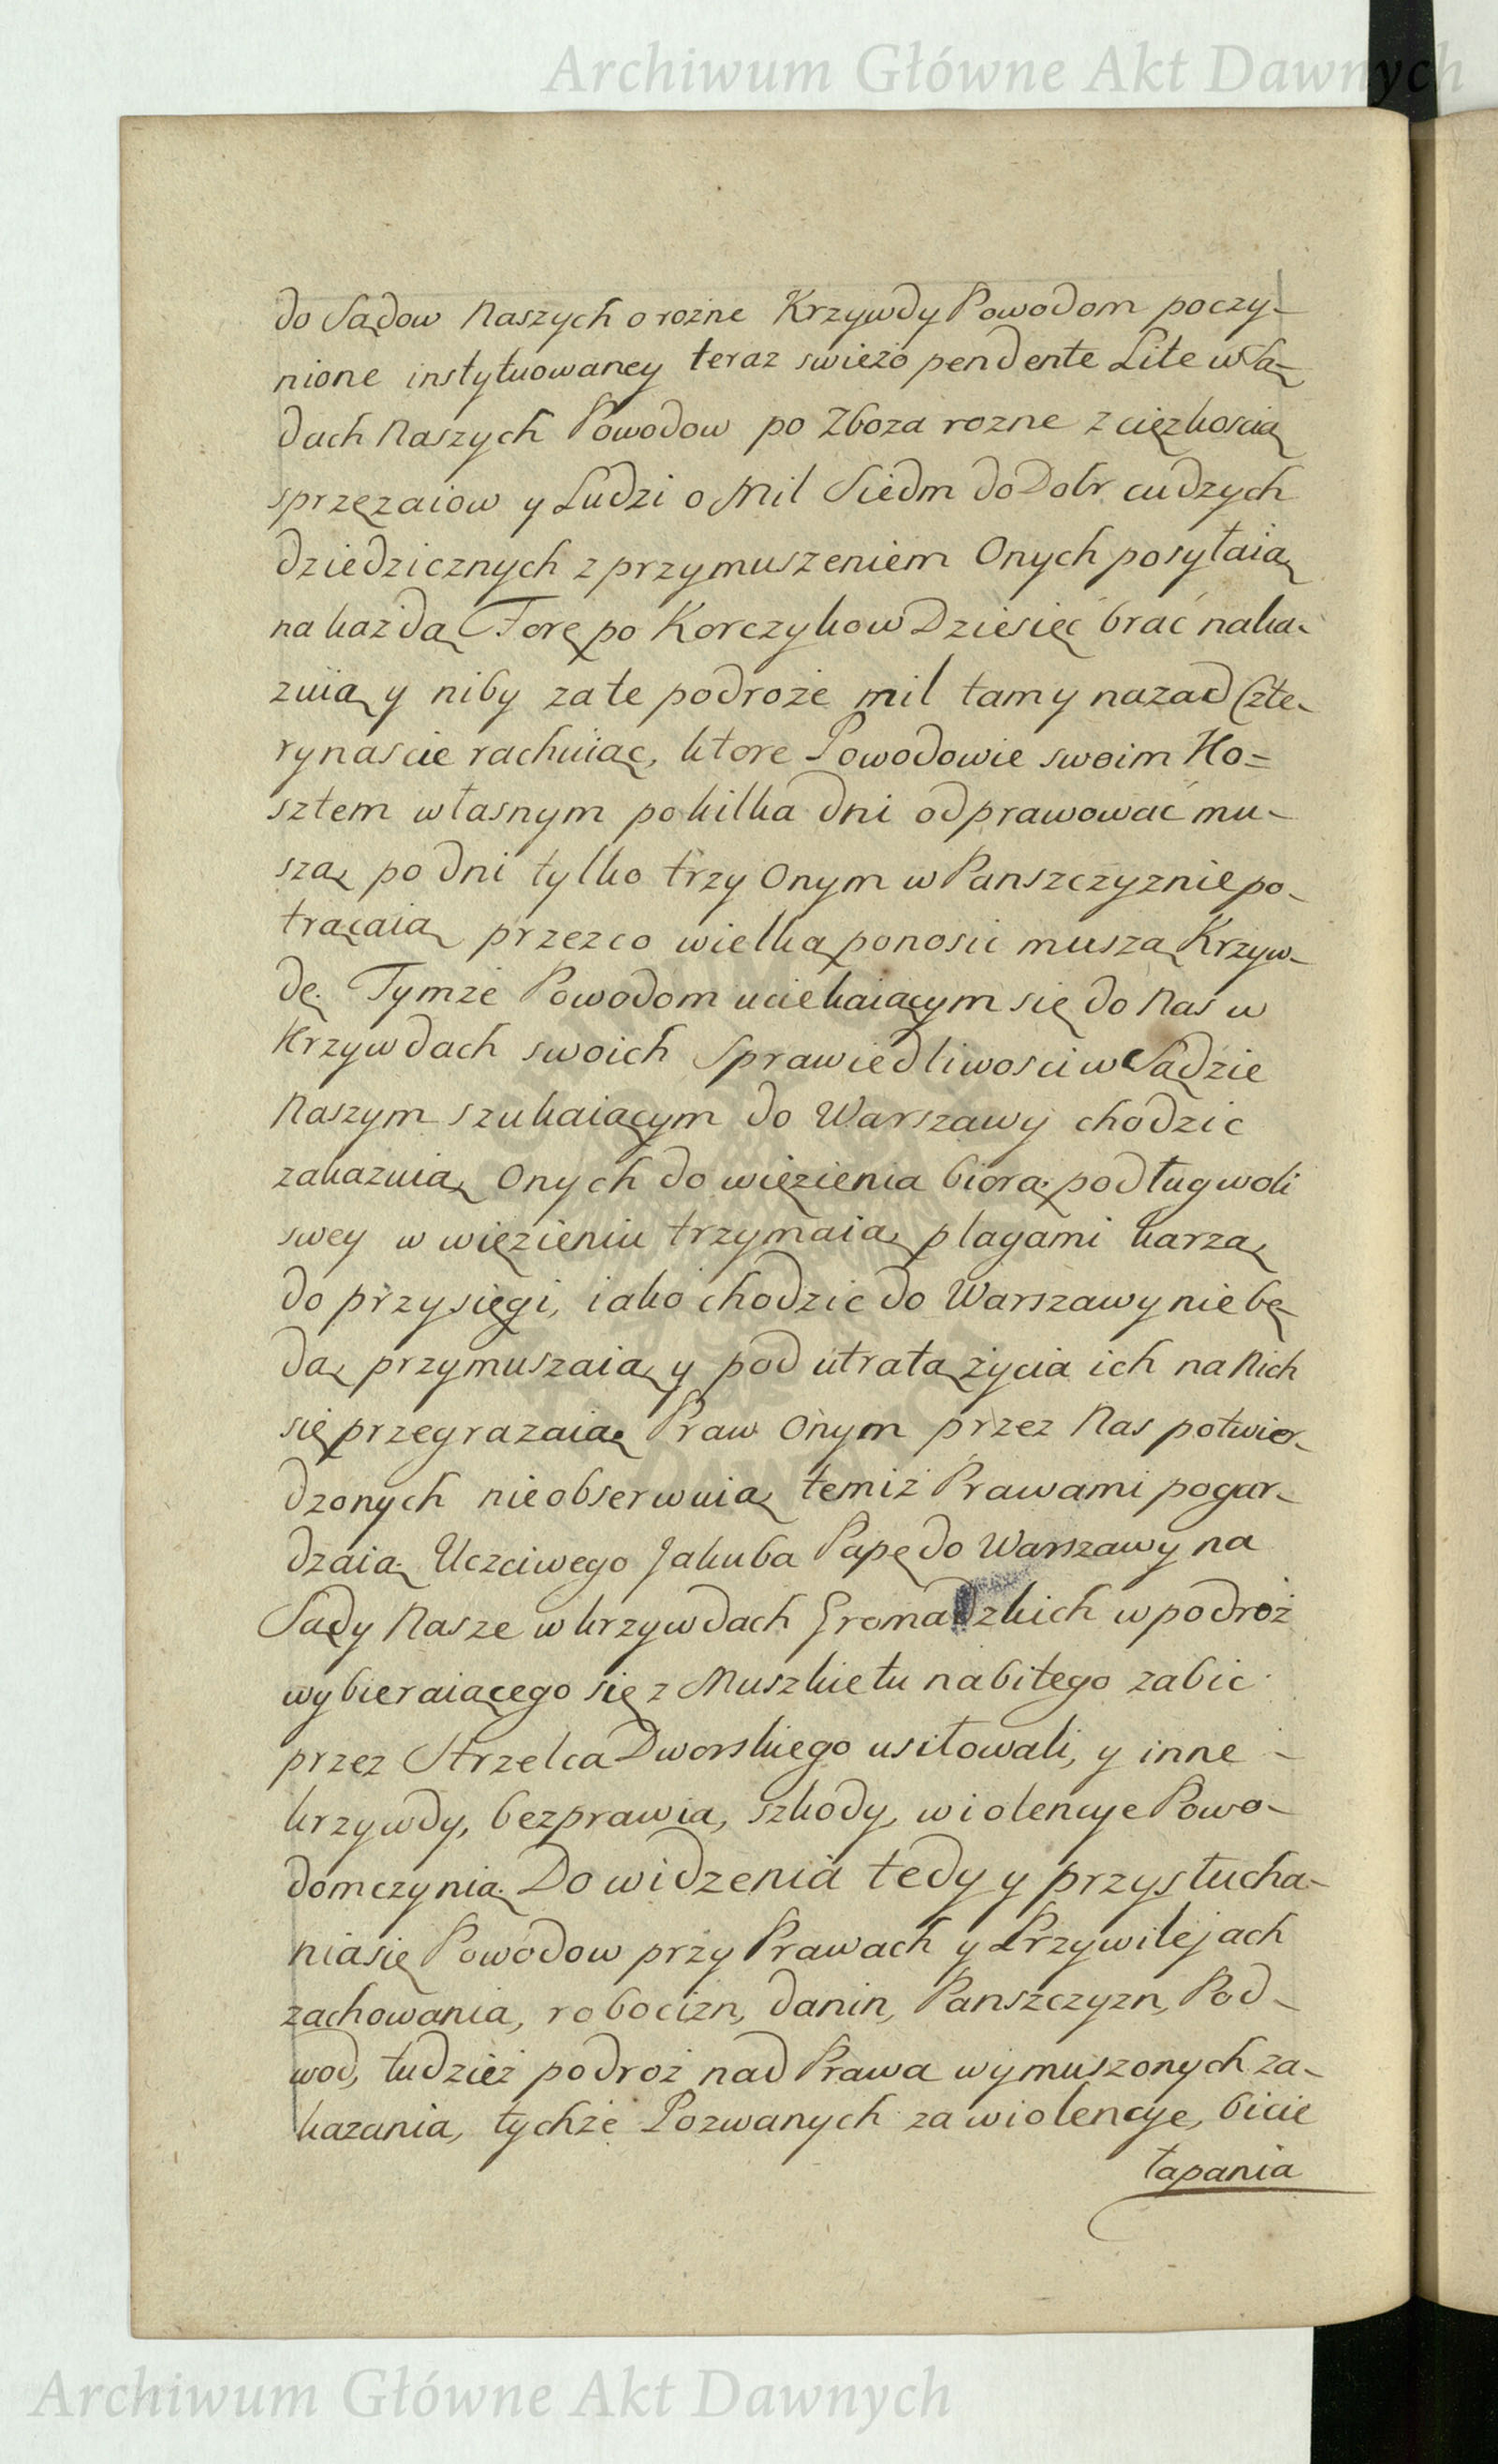 Archiwum Główne Akt Dawnych
do Sądow Naszych o rozne Krzywdy Powodom poczy-
nione instytuowaney teraz swiezo pendente Lite w Są-
dach Naszych Powodow po Zboza rozne z cięzkoscią
sprzęzaiow y Ludzi o Mil Siedm do Dobr cudzych
dziedzicznych z przymuszeniem Onych posyłaią
na kazdą Forę po Korczykow Dziesięć brać naka-
zuią y niby za te podroże mil tam y nazad Czte-
rynascie rachuiąc, ktore Powodowie swoim Ko=
sztem własnym po kilka dni odprawować mu-
szą, po dni tylko trzy Onym w Panszczyznie po-
trącaią przez co wielką ponosic muszą Krzyw-
dę. Tymże Powodom uciekaiącym się do Nas w
Krzywdach swoich Sprawiedliwosci w Sądzie
Naszym szukaiącym do Warszawy chodzic
zakazuią, Onych do więzienia biorą, podług woli
swey w więzieniu trzymaią, plagami karzą,
do przysięgi, iako chodzic do Warszawy nie bę-
dą, przymuszaią, y pod utratą życia ich na Nich
się przegrazaią, Praw Onym przez Nas potwier-
dzonych nieobserwuią, temiż Prawami pogar-
dzaią. Uczciwego Jakuba Papę do Warszawy na
Sądy Nasze w krzywdach Gromadzkich w podroż
wybieraiącego się z Muszkietu nabitego zabic
przez Strzelca Dworskiego usiłowali, y inne -
krzywdy, bezprawia, szkody, wiolencye Powo-
dom czynią. Do widzenia tedy y przysłucha-
nia się Powodow przy Prawach y Przywilejach
zachowania, robocizn, danin, Panszczyzn, Pod-
wod, tudzież podroż nad Prawa wymuszonych za-
kazania, tychże Pozwanych za wiolencye, bicie
łapania
Archiwum Główne Akt Dawnych